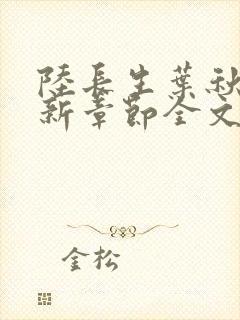 陸長生葉秋
新章節全文
金松